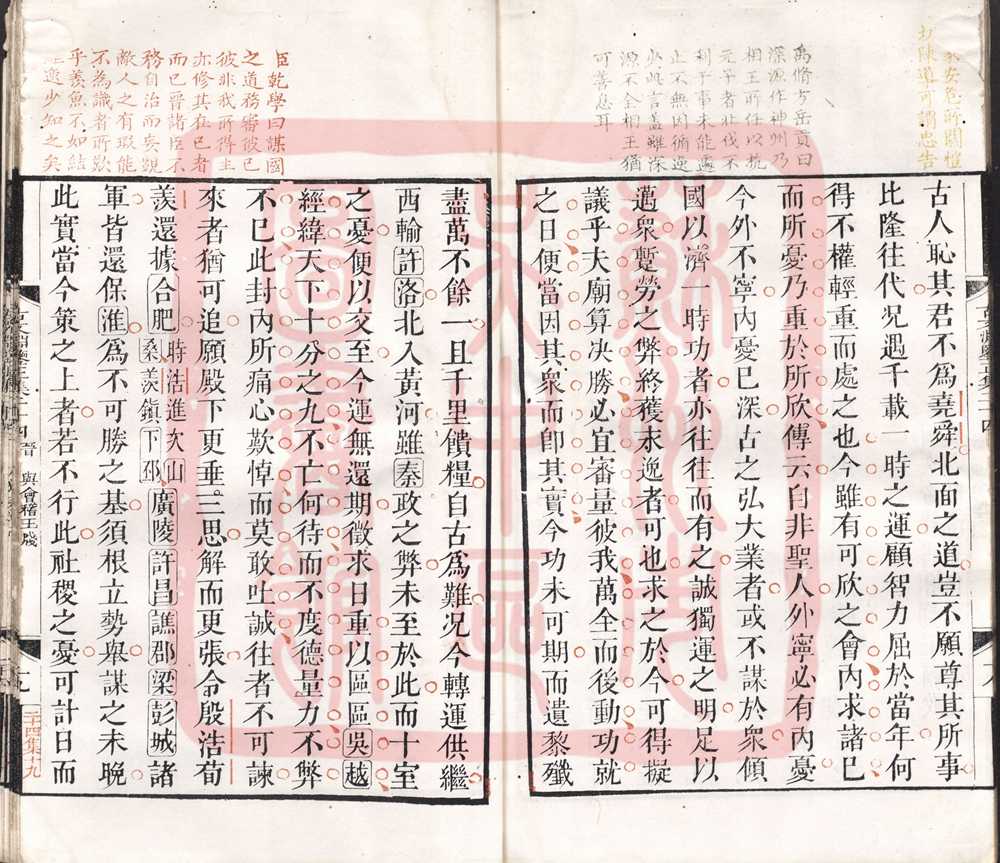 古人恥其君不爲堯舜北面之道豈不願尊其所事
比隆往代况遇千載一時之運顧智力屈於當年何
得不權輕重而處之也今雖有可欣之會內求諸已
而所憂乃重於所欣傳云自非聖人外寧必有內憂
今外不寧內憂已深古之弘大業者或不謀於衆傾
國以濟一時功者亦往往而有之誠獨運之明足以
邁衆蹔勞之弊終獲永逸者可也求之於今可得擬
議乎夫廟算决勝必宜審量彼我萬全而後動功就
之日便當因其衆而即其實今功未可期而遺黎殲
禹脩方岳貢曰
深源作神州乃
相王所任以抗
元子者北伐不
利于事未能遽
止不無因循逸
少此言蓋雖深
源不全相王猶
可善息耳
安危所關惓
打陳導可謂忠告
盡萬不餘一且千里饋糧自古爲難况今轉運供繼
西輸許洛北入黃河雖秦政之弊未至於此而十室
之憂便以交至今運無還期徵求日重以區區吳越
經緯天下十分之九不亡何待而不度德量力不弊
不已此封內所痛心歎悼而莫敢吐誠往者不可諫
來者猶可追願殿下更垂三思解而更張令殷浩荀
羨還據合肥時浩進次山桑羨鎮下邳廣陵許昌譙郡梁彭城諸
軍皆還保淮爲不可勝之基須根立勢舉謀之未晚
此實當今策之上者若不行此社稷之憂可計日而
臣乾學曰謀國
之道務審彼己
彼非我所得主
亦修其在己者
而已晉諸臣不
務自治而妄覬
敵人之有瑕能
不為識者所歎
乎羨魚不如結
逸少知之矣
晉
與會稽王牋
二十四集十九